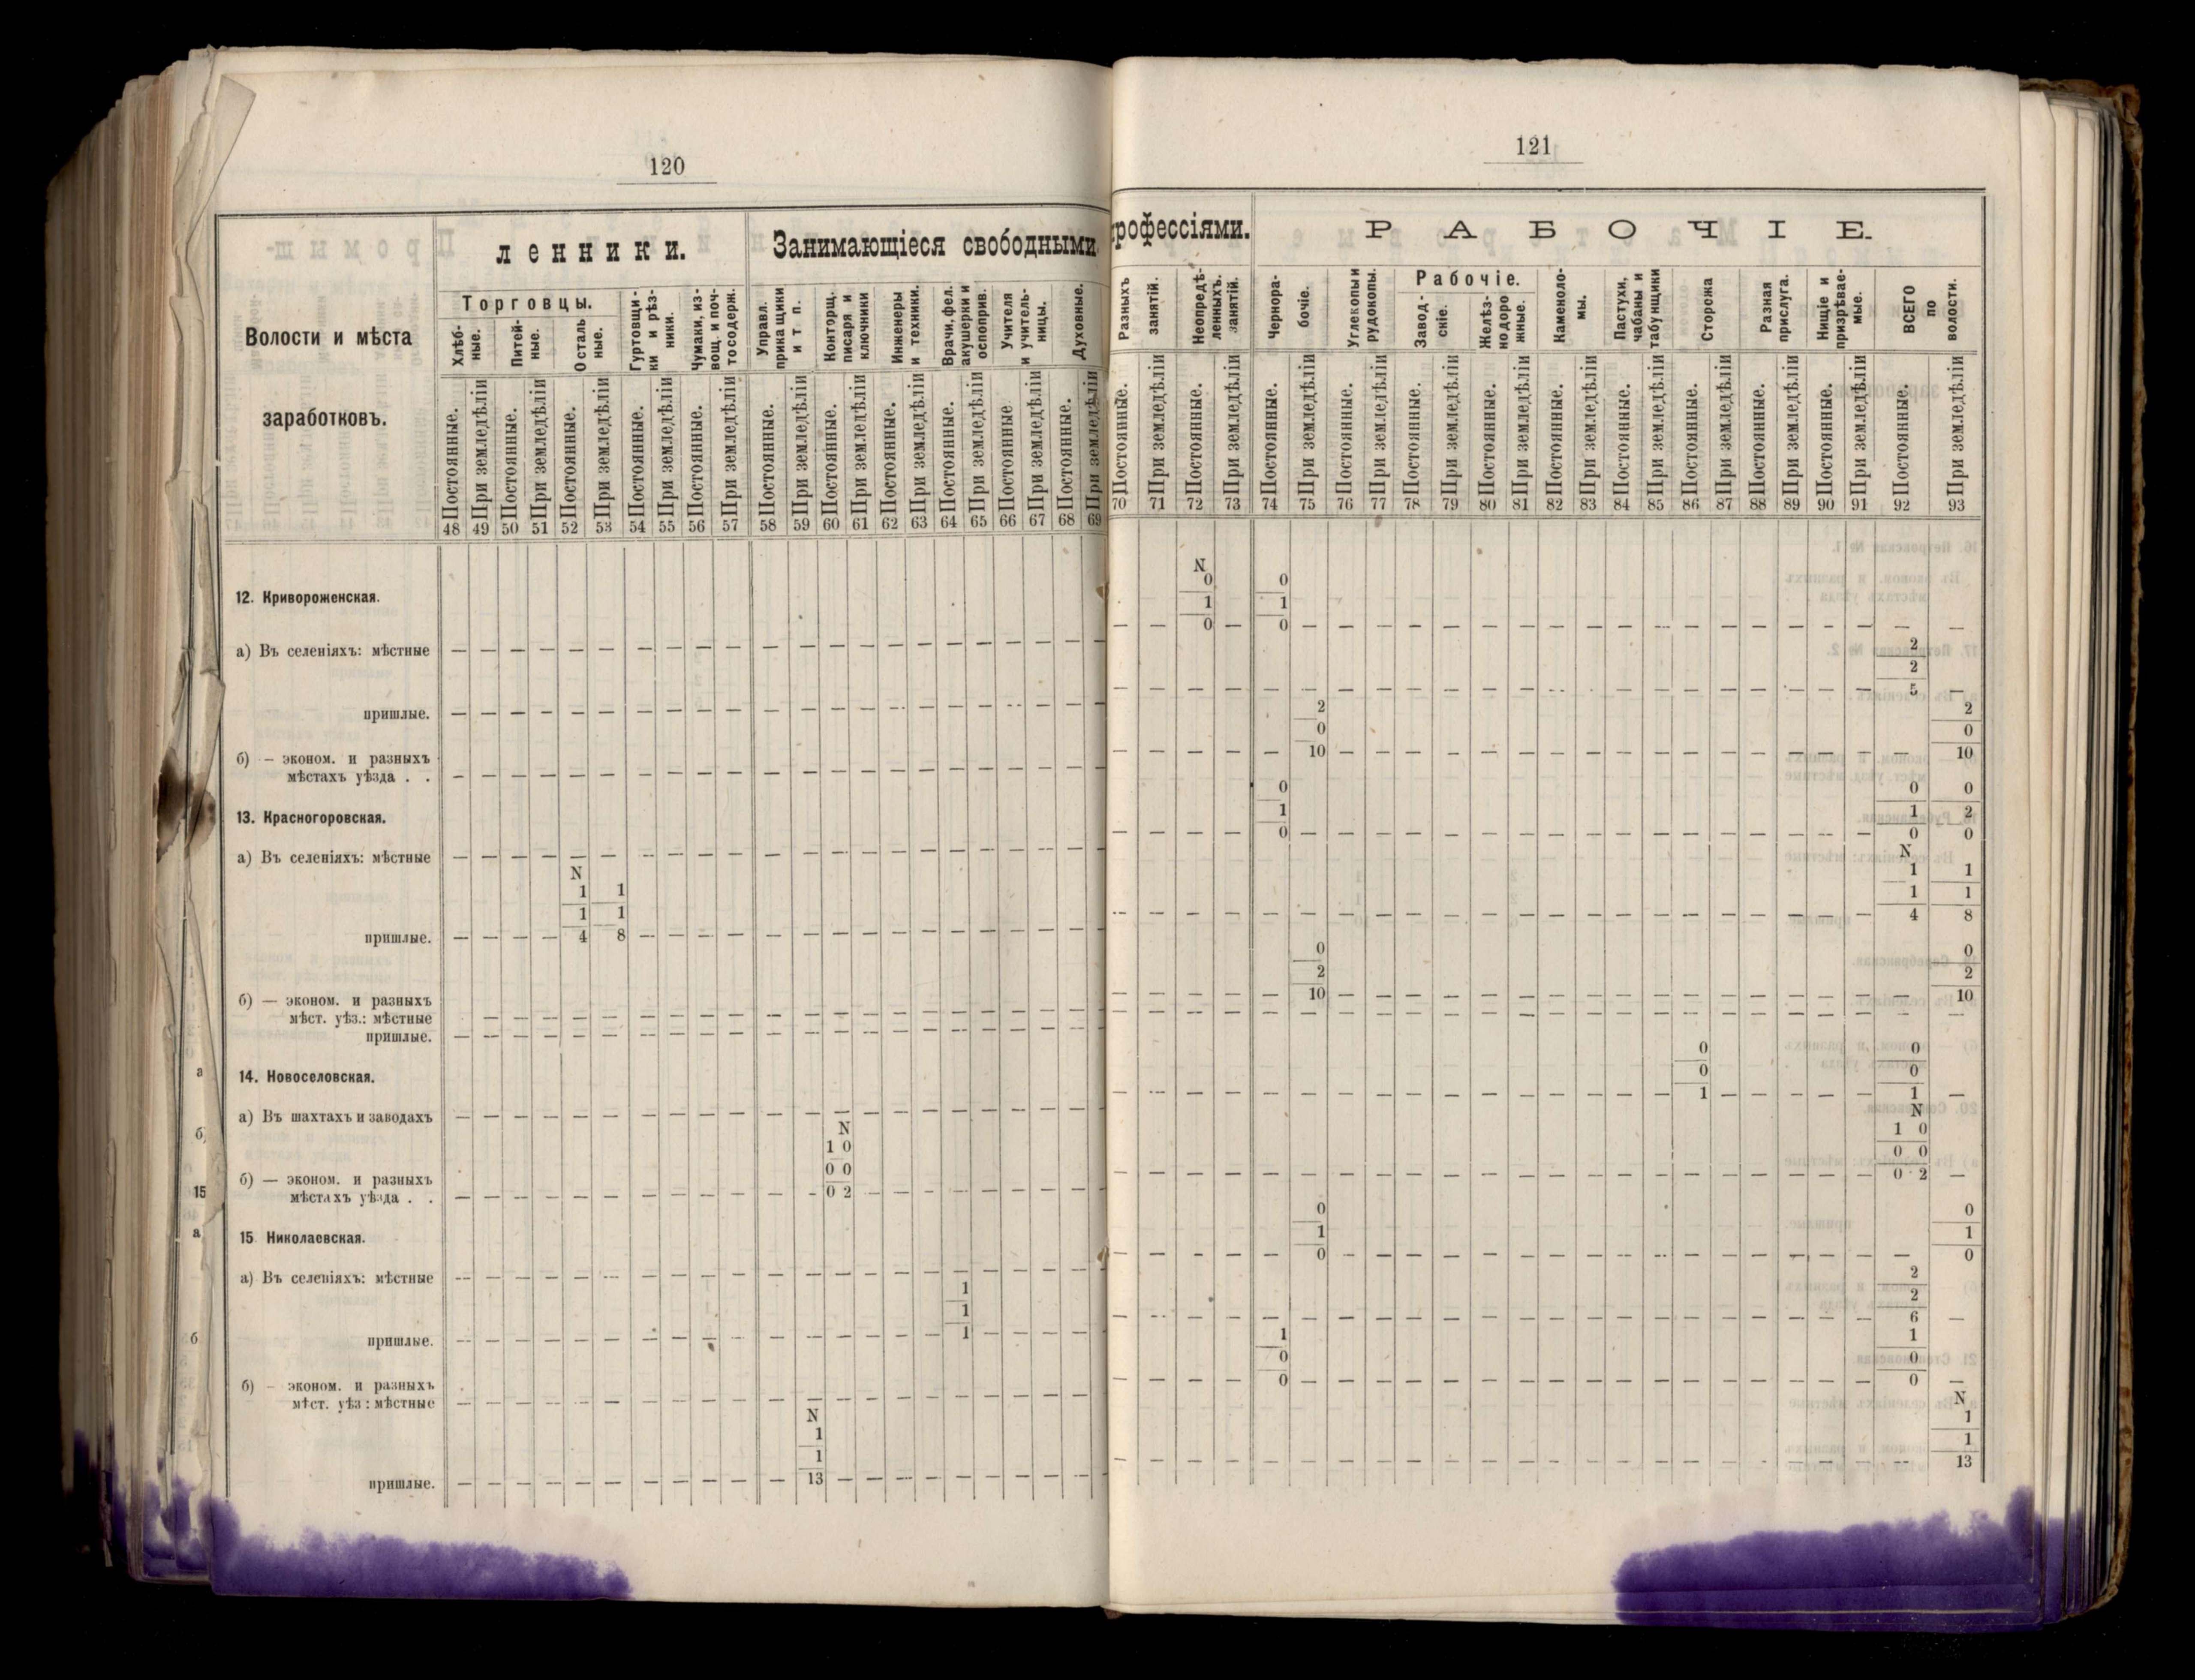 120
ленники.
Занимающіеся свободными
Волости и мѣста
заработковъ.
Торговцы.
Хлѣб-
ные.
Питей-
ные.
Осталь
ные.
Гуртовщи-
ки и рѣз-
ники.
Чумаки, из-
вощ. и поч-
тосодерж.
Управл.
прикащики
и т п.
Конторщ.
писаря и
ключники
Инженеры
и техники.
Врачи, фел.
акушерки и
оспоприв.
Учителя
и учитель-
ницы.
Духовные.
Постоянные. При земледѣліи Постоянные. При земледѣліи Постоянные. При земледѣліи Постоянные. При земледѣліи Постоянные. При земледѣліи Постоянные. При земледѣліи Постоянные. При земледѣліи Постоянные. При земледѣліи Постоянные. При земледѣліи Постоянные При земледѣліи Постоянные. При земледѣліи
48 49 50 51 52 53 54 55 56 57 58 59 60 61 62 63 64 65 66 67 68 69
12. Кривороженская.
а) Въ селеніяхъ: мѣстные — — — — — — — — — — — — — — — — — — — — — —
пришлые. — — — — — — — — — — — — — — — — — — — — — —
б) — эконом. и разныхъ
мѣстахъ уѣзда . . — — — — — — — — — — — — — — — — — — — — — —
13. Красногоровская.
а) Въ селеніяхъ: мѣстные — — — — — — — — — — — — — — — — — — — — — —
N
1 1
1 1
пришлые. — — — — 4 8 — — — — — — — — — — — — — — — —
б) — эконом. и разныхъ
мѣст. уѣз.: мѣстные — — — — — — — — — — — — — — — — — — — — —
пришлые. — — — — — — — — — — — — — — — — — — — — — —
14. Новоселовская.
а) Въ шахтахъ и заводахъ — — — — — — — — — — — — — — — — — — — — — —
N
1 0
0 0
б) — эконом. и разныхъ
мѣстахъ уѣзда . . — — — — — — — — — — — — 0 2 — — — — — — — — —
15 Николаевская.
а) Въ селеніяхъ: мѣстные — — — — — — — — — — — — — — — — — — — — — —
1
1
пришлые. — — — — — — — — — — — — — — — — 1 — — — — —
б) — эконом. и разныхъ
мѣст. уѣз: мѣстные — — — — — — — — — — — — — — — — — — — — — —
N
1
1
пришлые. — — — — — — — — — — — 13 — — — — — — — — — —
а
б
15
а
б
121
рофессіями.
РАБОЧІЕ.
Разныхъ
занятій.
Неопредѣ-
ленныхъ.
занятій.
Чернора-
бочіе.
Углекопы и
рудокопы.
Рабочіе.
Завод-
скіе.
Желѣз-
нодоро
жные.
Каменоло-
мы.
Пастухи,
чабаны и
табунщики
Сторожа
Разная
прислуга.
Нищіе и
призрѣвае-
мые.
ВСЕГО
по
волости.
Постоянные. При земледѣліи Постоянные. При земледѣліи Постоянные. При земледѣліи Постоянные. При земледѣліи Постоянные. При земледѣліи Постоянные. При земледѣліи Постоянные. При земледѣліи Постоянные. При земледѣліи Постоянные. При земледѣліи Постоянные. При земледѣліи Постоянные. При земледѣліи Постоянные. При земледѣліи
70 71 72 73 74 75 76 77 78 79 80 81 82 83 84 85 86 87 88 89 90 91 92 93
N
0 0
1 1
— — 0 — 0 — — — — — — — — — — — — — — — — — — —
2
2
— — — — — — — — — — — — — — — — — — — — — — 5 —
2 2
0 0
— — — — — 10 — — — — — — — — — — — — — — — — — 10
0 0 0
1 1 2
— — — — 0 — — — — — — — — — — — — — — — — — 0 0
N
1 1
1 1
— — — — — — — — — — — — — — — — — — — — — — 4 8
0 0
2 2
— — — — — 10 — — — — — — — — — — — — — — — — — 10
— — — — — — — — — — — — — — — — — — — — — — — —
0 0
0 0
— — — — — — — — — — — — — — — — 1 — — — — — 1 —
N
1 0
0 0
— — — — — — — — — — — — — — — — — — — — — — 0 2 —
0 0
1 1
— — — — — 0 — — — — — — — — — — — — — — — — — 0
2
2
— — — — — — — — — — — — — — — — — — — — — — 6 —
1 1
0 0
— — — — 0 — — — — — — — — — — — — — — — — — 0 —
N
1
1
— — — — — — — — — — — — — — — — — — — — — — — 13